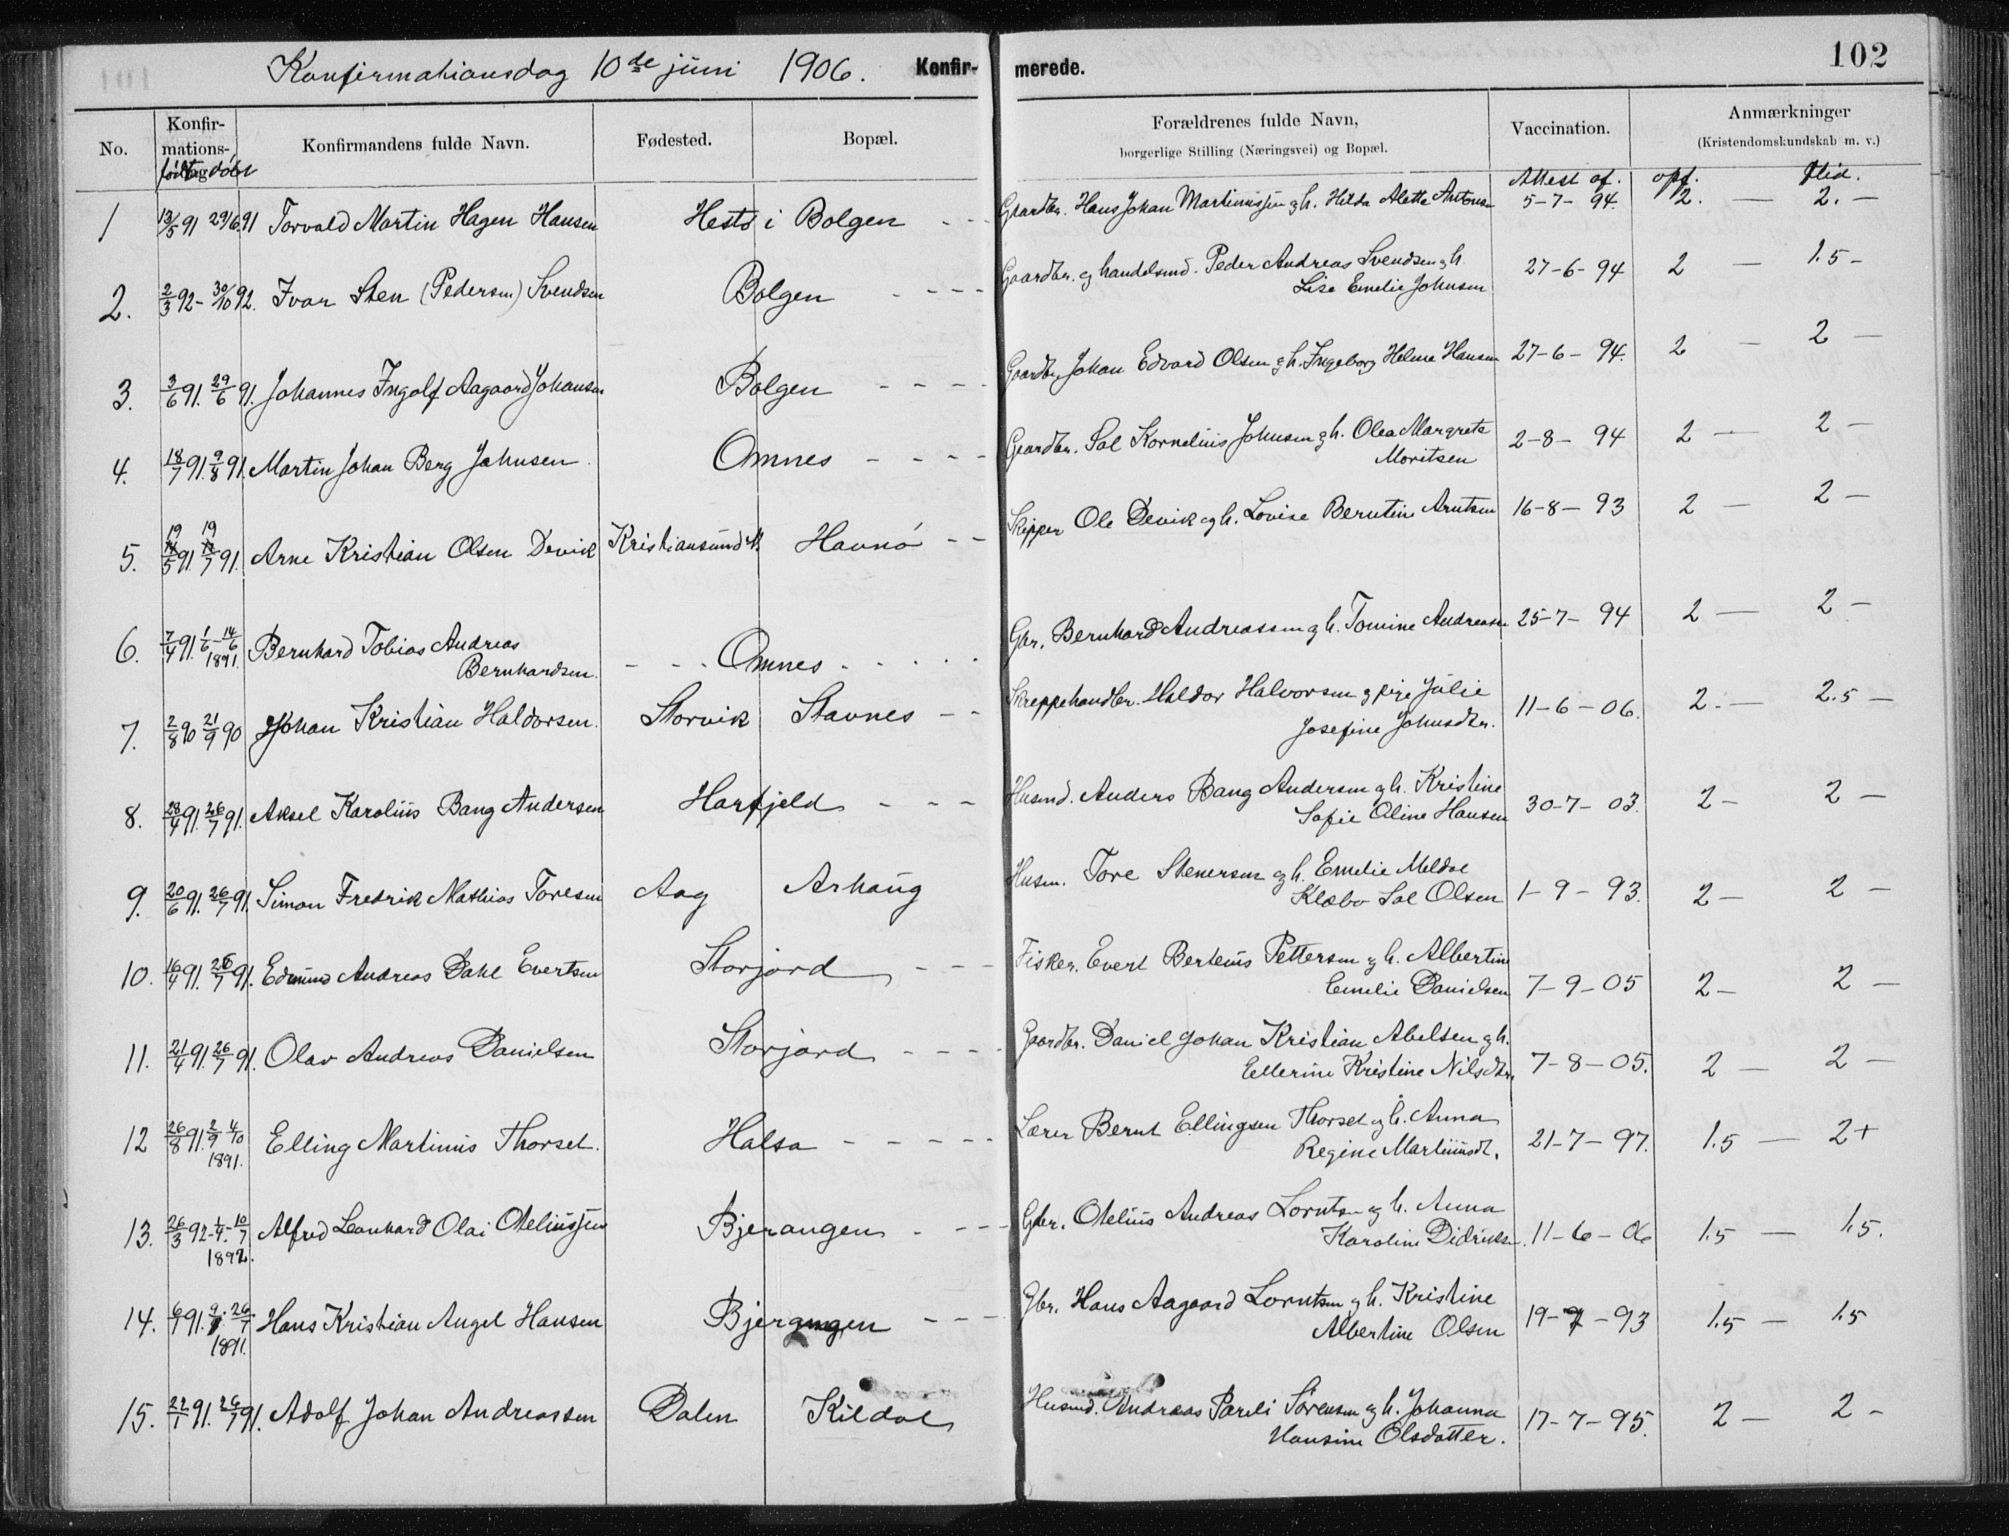 Konfirmationsdag 10de juni 1906. Konfir- merede. 102
No. Konfir- mations- dag født døbt Konfirmandens fulde Navn. Fødested. Bopæl. Forældrenes fulde Navn, borgerlige Stilling (Næringsvei) og Bopæl. Vaccination. Anmærkninger (Kristendomskundskab m. v.)
Attest af. opf. flid.
1 13/5 91 29/6 91 Torvald Martin Hagen Hansen Hestø i Bolgen Gaardbr. Hans Johan Martinussen og h. Hilda Aletta Antonsen 5-7-94. 2. — 2. —
2. 2/3 92 - 30/10 92. Ivar Sten (Pedersen) Svendsen Bolgen Gaardbr. og handelsmd. Peder Andreas Svendsen og h.
Lise Emelie Johnsen 27-6-94 2 — 1.5 —
3. 3/6 91. 29/6 91. Johannes Ingolf Aagaard Johansen Bolgen Gaardbr. Johan Edvard Olsen og h. Ingeborg Helene Hansen 27-6-94. 2 — 2 —
4. 18/7 91. 9/8 91. Martin Johan Berg Johnsen Omnes Gaardbr. Sal Kornelius Johnsen og h. Olea Margrete
Moritsen 2-8-94 2 — 2 —
5. 19/5 91. 19/7 91. Arne Kristian Olsen Devik Kristiansund N. Havnö Skipper Ole Devik og h. Lovise Berntine Arntsen 16-8-93 2 — 2 —
6. 7/4 91. 1/6 - 14/6 1891. Bernhard Tobias Andreas
Bernhardsen. Omnes Gbr. Bernhard Andreassen og h. Tomine Andreasen 25-7-94 2 — 2 —
7. 2/8 90 21/9 90 Johan Kristian Haldorsen. Storvik Stavnes Skreppehandler. Haldor Halvorsen og pige Julie
Josefine Johnsdtr. 11-6-06. 2. — 2.5 —
8. 28/4 91. 26/7 91. Aksel Karolius Bang Andersen Harfjeld Husmd. Anders Bang Andersen og h. Kristine
Sofie Oline Hansen 30-7-03. 2 — 2 —
9. 20/6 91. 26/7 91. Simon Fredrik Mathias Toresen Aag Arhaug Husm. Tore Stenersen og h. Emelie Meldal
Klæbo Sal Olsen 1-9-93. 2 — 2 —
10. 16/4 91. 26/7 91. Edmund Andreas Dahl Evertsen Storjord Fisker. Evert Berteus Pettersen og h. Albertine
Emelie Danielsen 7-9-05 2 — 2 —
11. 21/4 91. 26/7 91. Olav Andreas Danielsen Storjord Gaardbr. Daniel Johan Kristian Abelsen og h.
Ellerine Kristine Nilsdtr. 7-8-05. 2 — 2 —
12 26/8 91. 2/9 4/10 1891. Elling Martinus Thorset. Halsa Lærer Bernt Ellingsen Thorset og h. Anna
Regine Martinusdt. 21-7-97. 1.5 — 2+
13. 26/3 92 - 1/4 - 10/7 1892. Alfred Leonhard Olai Oteliussen Bjerangen Gbr. Otelius Andreas Lorntsen og h. Anna
Karoline Didriksen. 11-6-06 1.5 — 1.5.
14. 6/7 91. 9/7. 26/7 1891. Hans Kristian Angel Hansen Bjerangen Gbr. Hans Aagaard Lorntsen og h. Kristine
Albertine Olsen 19-7-93 1.5 — 1.5
15. 22/1 91. 26/7 91. Adolf Johan Andreassen Dalen Kildal Husmd. Andreas Pareli Sørensen og h. Johanna
Hansine Olsdatter. 17-7-95. 2 — 2 -